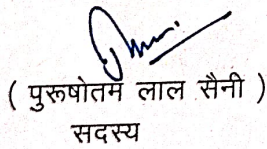 ( पुरूषोतम लाल सैनी )
सदस्य